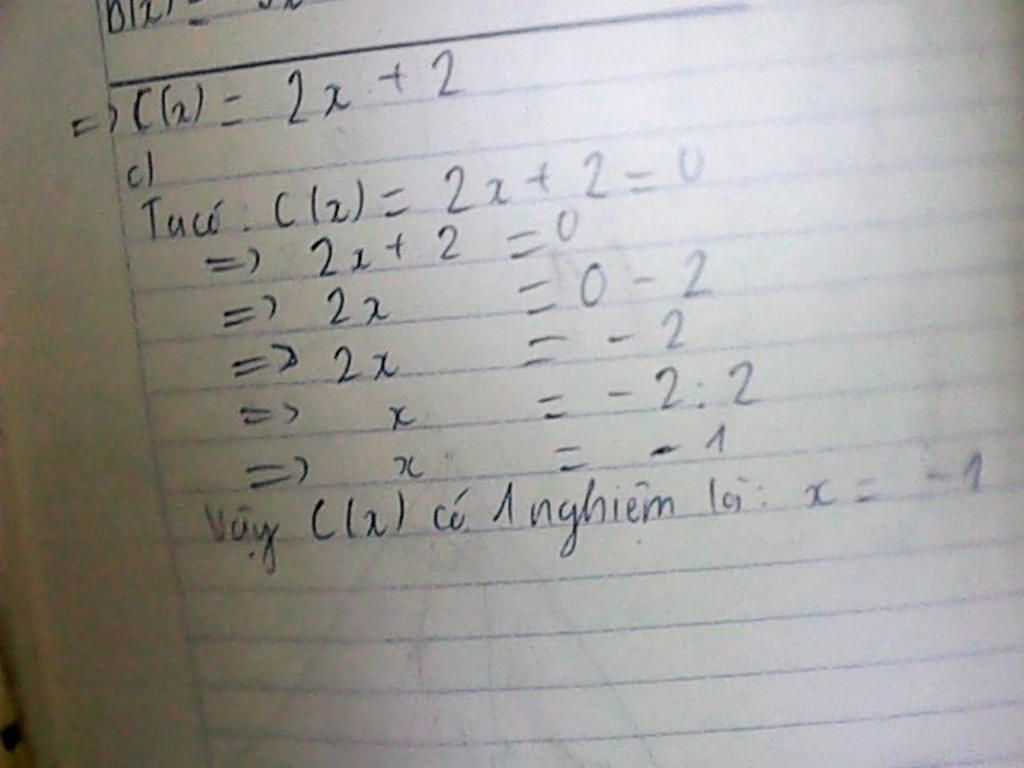 => C(x) = 2x + 2
c)
Ta có: C(x) = 2x + 2 = 0
=> 2x + 2 = 0
=> 2x = 0 - 2
=> 2x = - 2
=> x = - 2 : 2
=> x = - 1
Vậy C(x) có 1 nghiệm là: x = - 1